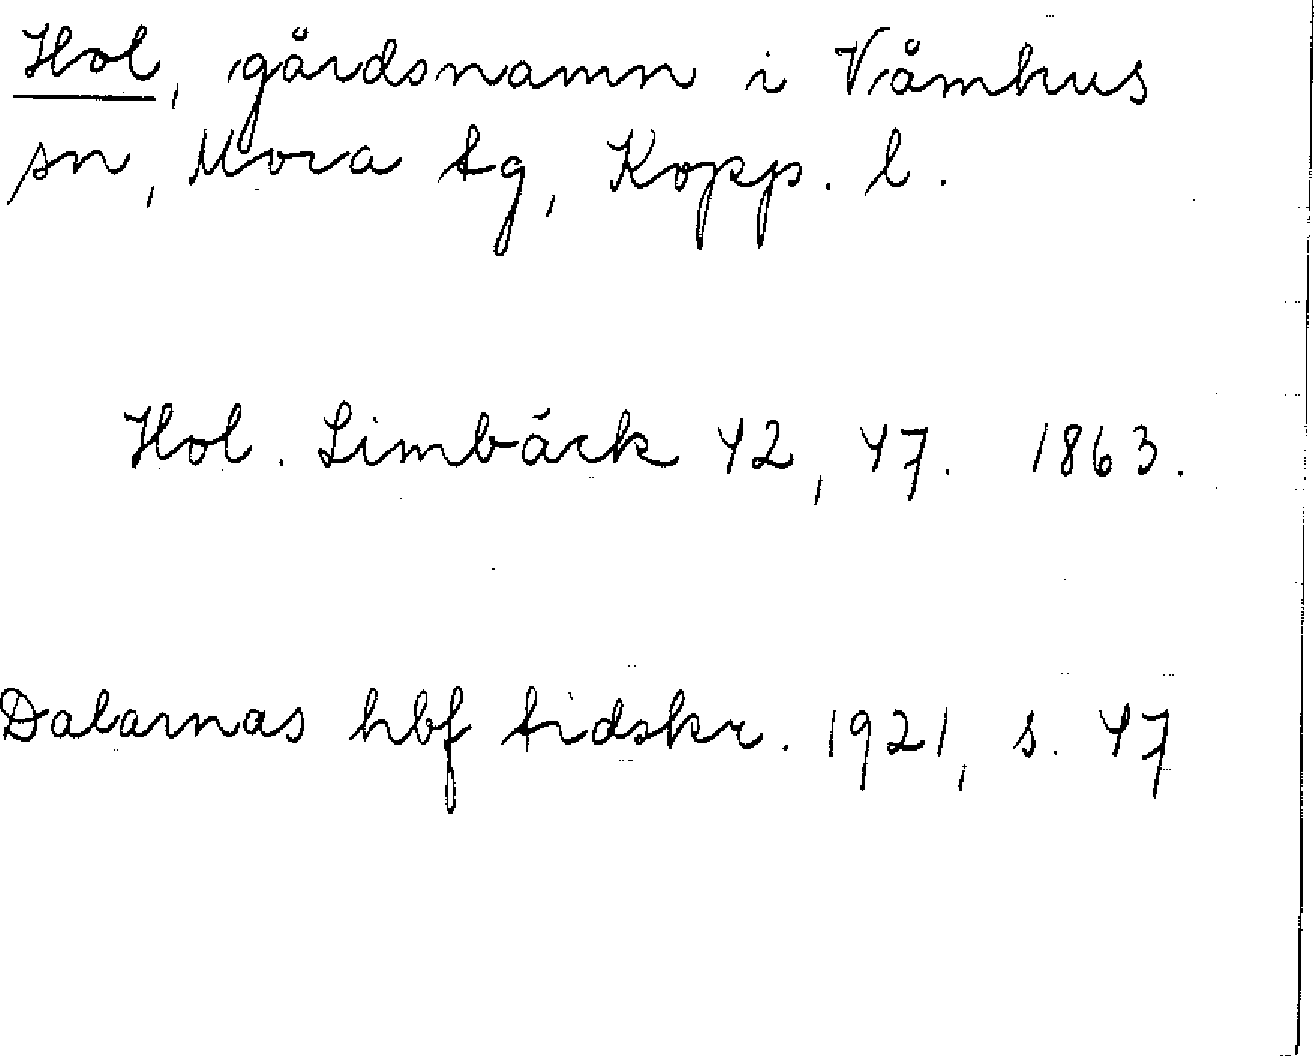 Hol, gårdsnamn i Våmhus
sn, Mora tg, Kopp. l.
Hol. Limbäck 42, 47. 1863.
Dalarnas hbf tidskr. 1921, s. 47